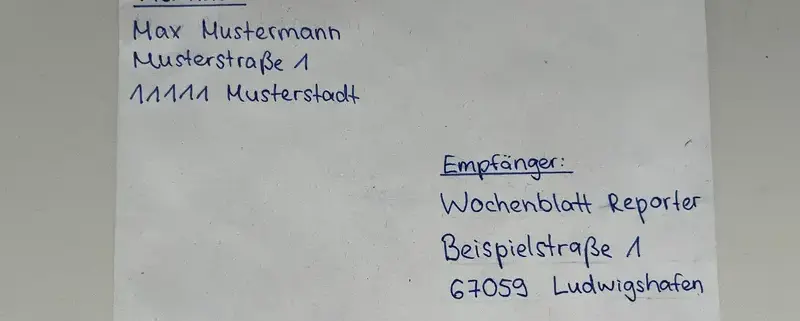 Max Mustermann
Musterstraße 1
11111 Musterstadt
Empfänger:
Wochenblatt Reporter
Beispielstraße 1
67059 Ludwigshafen